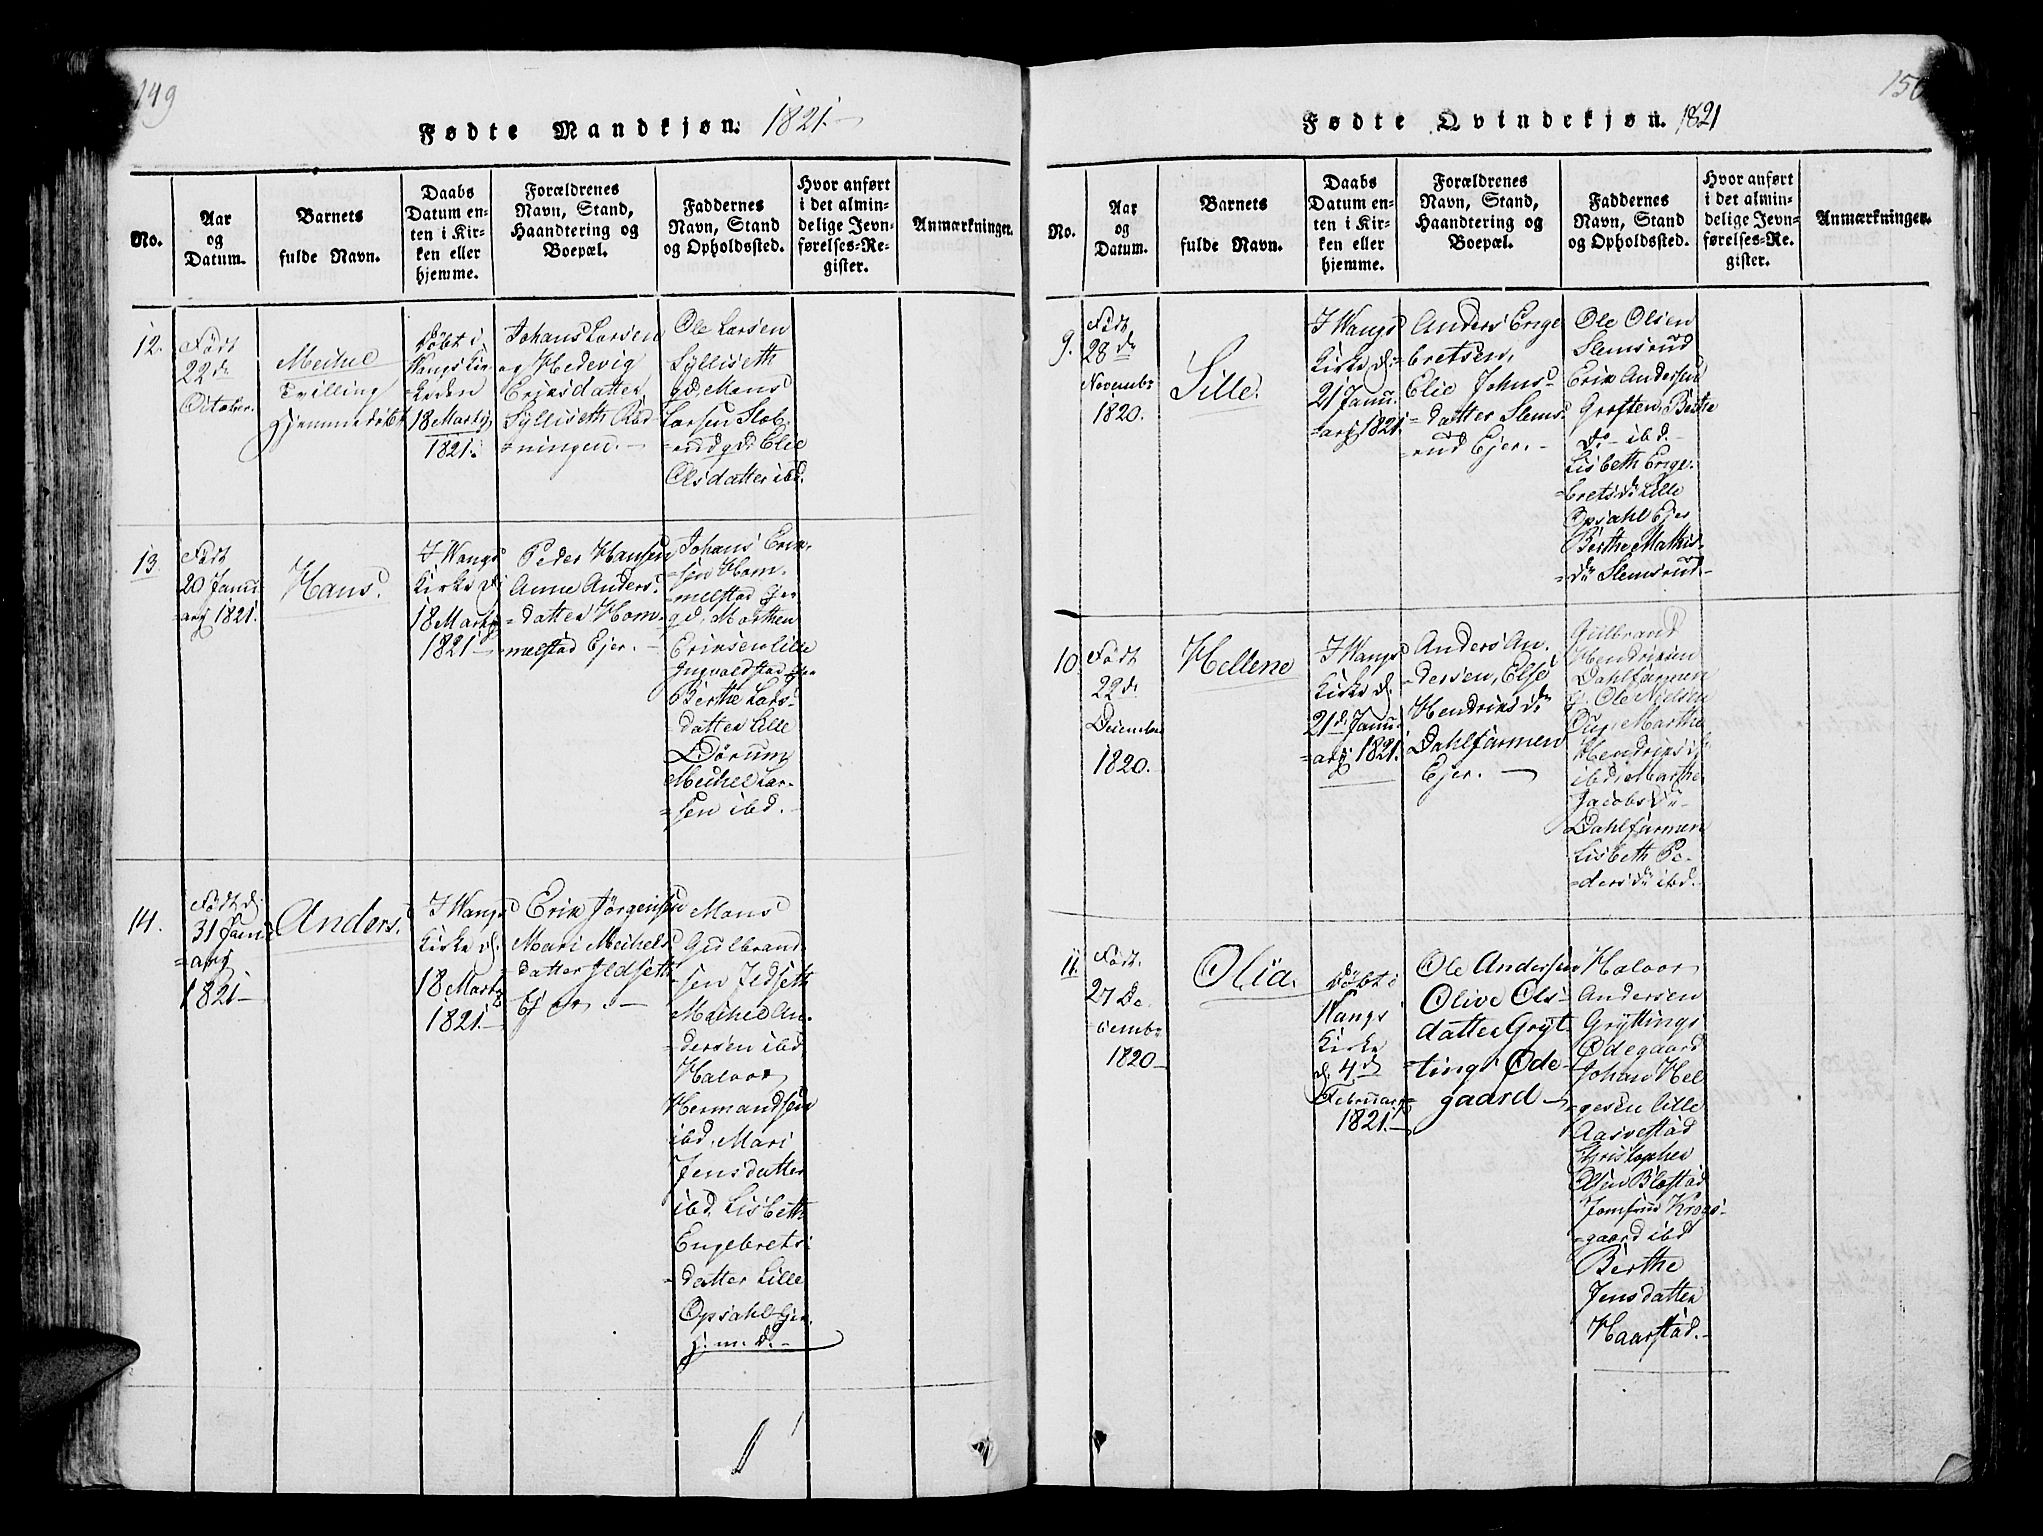 149
Fødte Mandkjøn. 1821.
No.
Aar
og
Datum.
Barnets
fulde Navn.
Daabs
Datum en-
ten i Kir-
ken eller
hjemme.
Forældrenes
Navn, Stand,
Haandtering og
Boepæl.
Faddernes
Navn, Stand
og Opholdssted.
Hvor anført
i det almin-
delige Jevn-
førelses-Re-
gister.
Anmærkninger.
12.
Født
22de
October.
Meihel
Tvilling
hjemmedøbt
Døbt i
Wangs Kir-
ke den
18 Martij
1821.
Johans Larsen
og Hedevig
Eriksdatter
Sylliseth Rød-
ningen.
Ole Larsen
Sylliseth
gd, Mons
Larsen Slob-
rud gd, Elie
Olsdatter ibd.
13.
Født
20 Janu-
arij 1821.
Hans
I Wangs
Kirke d.
18 Martij
1821
Peder Hansen
Anne Anders-
datter Hom-
melstad Ejer.
Johans Erik-
sen Hom-
melstad Ejer
gd, Morthen
Eriksen Lille
Ingvaldstad
Berthe Lars-
datter Lille
Dørum
Meihel Lar-
sen ibd.
14.
Født d.
31 Janu-
arij
1821
Anders.
I Wangs
Kirke d.
18 Martij
1821.
Erik Jørgensen
Mari Meihels-
datter Ildseth
Ejer.
Mons
Gulbrand-
sen Ildseth
Meihel An-
dersen ibd
Halvor
Hermandsen
ibd. Mari
Jensdatter
ibd. Lisbeth
Engebrets-
datter Lille
Opsahl Ejer.
150
Fødte Qvindekjøn. 1821
No.
Aar
og
Datum.
Barnets
fulde Navn.
Daabs
Datum en-
ten i Kir-
ken eller
hjemme.
Forældrenes
Navn, Stand,
Haandtering og
Boepæl.
Faddernes
Navn, Stand
og Opholdssted.
Hvor anført
i det almin-
delige Jevn-
førelses-Re-
gister.
Anmærkninger.
9.
Født
28de
Novembr
1820.
Sille.
I Wangs
Kirke d.
21 Janu-
arij 1821.
Anders Enge
bretsen,
Elie Johns-
datter Slems-
rud Ejer.
Ole Olsen
Slemsrud
Erik Andersen
Groften, Berthe
do ibd.
Lisbeth Enge-
bretsdr Lille
Opsahl Ejer
Berthe Mathis-
dr Slemsrud.
10.
Født
22de
Decembr
1820.
Hellene
I Wangs
Kirke d.
21d Janu-
arij 1821.
Anders An-
dersen, Else
Hendriksdr
Dahlfarmen
Ejer.
Gulbrand
Hendriksen
Dahlfarmen
Ole Nielsen
Marthe
Hendriksdr
ibd, Marthe
Jacobsdr
Dahlfarmen
Lisbeth Pe-
dersdr ibd.
11.
Født.
27 De-
cembr
1820
Olia.
Døbt i
Wangs
Kirke
d. 4d
Februarij
1821.
Ole Andersen
Olive Ols-
datter Gryt-
tings Øde-
gaard
Halvor
Andersen
Gryttings
Ødegaard
Johan Hel
gesen Lille
Aasvestad
Christopher
Olsen Blæstad
Jomfrue Krogs-
gaard ibd
Berthe
Jensdatter
Haarstad.